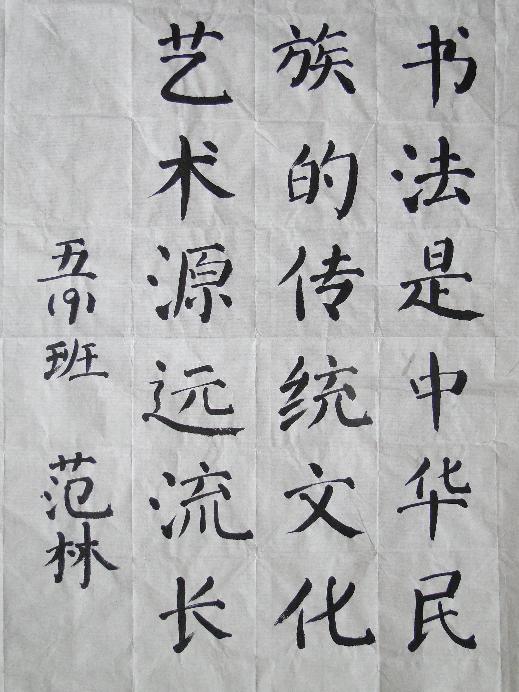 书法是中华民
族的传统文化
艺术源远流长
五(9)班 范林